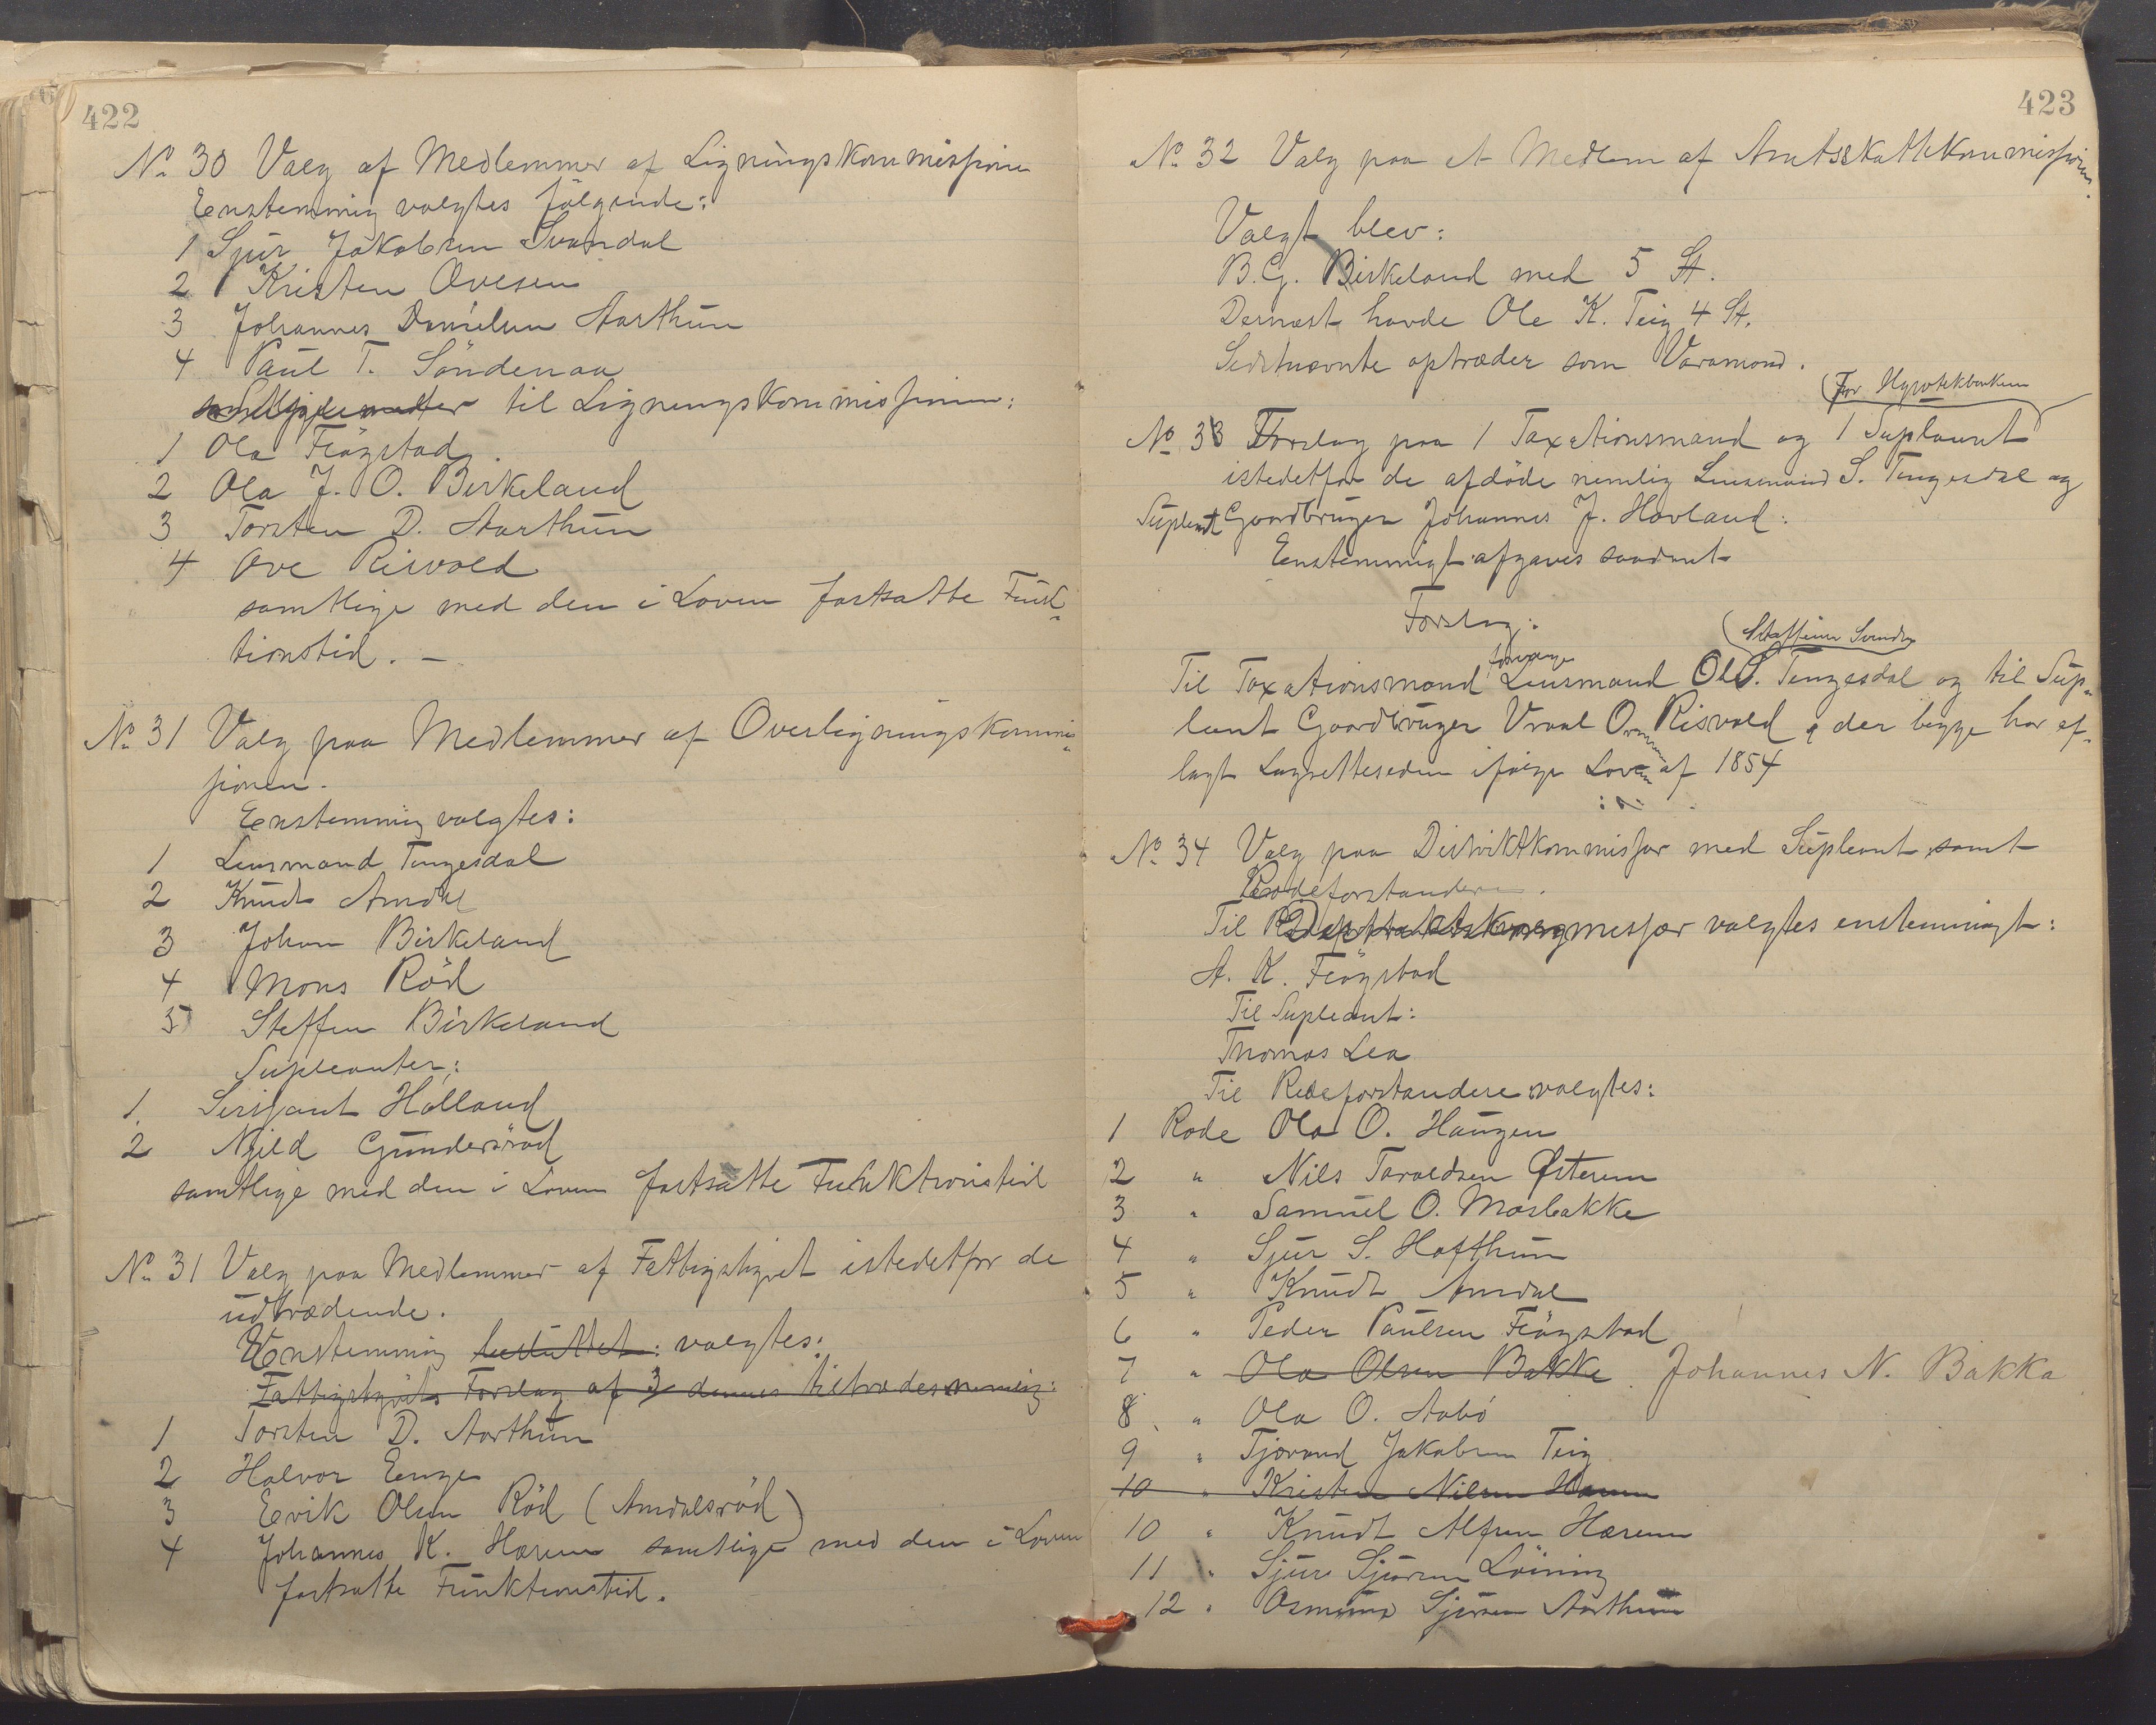 422
No 30 Valg af Medlemmer af Ligningskommissionen
Eenstemmig valgtes følgende:
1 Sjur Jakobsen Svandal
2 Kristen Ovesen
3 Johannes Danielsen Aarthun
4 Paul T. Söndenaa
til Ligningskommissionen:
1 Ola Fløgstad.
2 Ola J. O. Birkeland
3 Torsten D. Aarthun
4 Ove Risvold
samtlige med den i Loven fastsatte Funk-
tionstid. –
No 31 Valg paa Medlemmer af Overligningskommi-
sionen.
Eenstemmig valgtes:
1 Lensmand Tengesdal
2 Knudt Amdal
3 Johan Birkeland
4 Mons Röd
5 Steffen Birkeland
Supleanter:
1 Sersjant Halland
2 Njeld Gundersröd
samtlige med den i Loven fastsatte Funktionstid
No 31 Valg paa Medlemmer af Fattigstyret istedetfor de
udtrædende.
Eenstemmig besluttet: valgtes:
Fattigstyrets Forslag af 3 dennes tiltrædes nemlig:
1 Torsten D. Aarthun
2 Halvor Eenge
3 Eerik Olsen Röd (Amdalsröd)
4 Johannes K. Hærem samtlige med den i Loven
fastsatte Funktionstid.
423
No 32 Valg paa et Medlem af Amtsskattekommissionen.
Valgt blev:
B. G. Birkeland med 5 St.
Dernæst havde Ole K. Teig 4 St.
Sidstnævnte optræder som Varamand.
(For Hypotekbanken
No 33 Forslag paa 1 Taxationsmand og 1 Supleant
istedetfor de afdöde nemlig Lensmand S. Tengesdal og
Supleant Gaardbruger Johannes J. Havland:
Eenstemmigt afgaves saadant
Forslag:
(Staffeins Svends
Til Taxationsmand forhenv. Lensmand Ole S. Tengesdal og til Sup-
leant Gaardbruger Vraal Ormsen Risvold, der begge har af-
lagt Lagretteseden ifølge Loven af 1854
No 34 Valg paa Distriktkommissær med Supleant samt
Rodeforstandere.
Til Distriktskommissær valgtes enstemmigt:
A. K. Fløgstad
Til Supleant:
Thomas Lea
Til Rodeforstandere valgtes:
1 Rode Ola O. Haugen
2 " Nils Taraldsen Østerem
3 " Samuel O. Mosbakke
4 " Sjur S. Hofthun
5 " Knudt Amdal
6 " Peder Paulsen Fløgstad
7 " Ola Olsen Bakke Johannes N. Bakka
8 " Ola O. Aabö
9 " Tjerand Jakobsen Teig
10 " Kristen Nilsen Hærem
10 " Knudt Alfsen Hærem
11 " Sjur Sjursen Löining
12 " Osmund Sjursen Aarthun